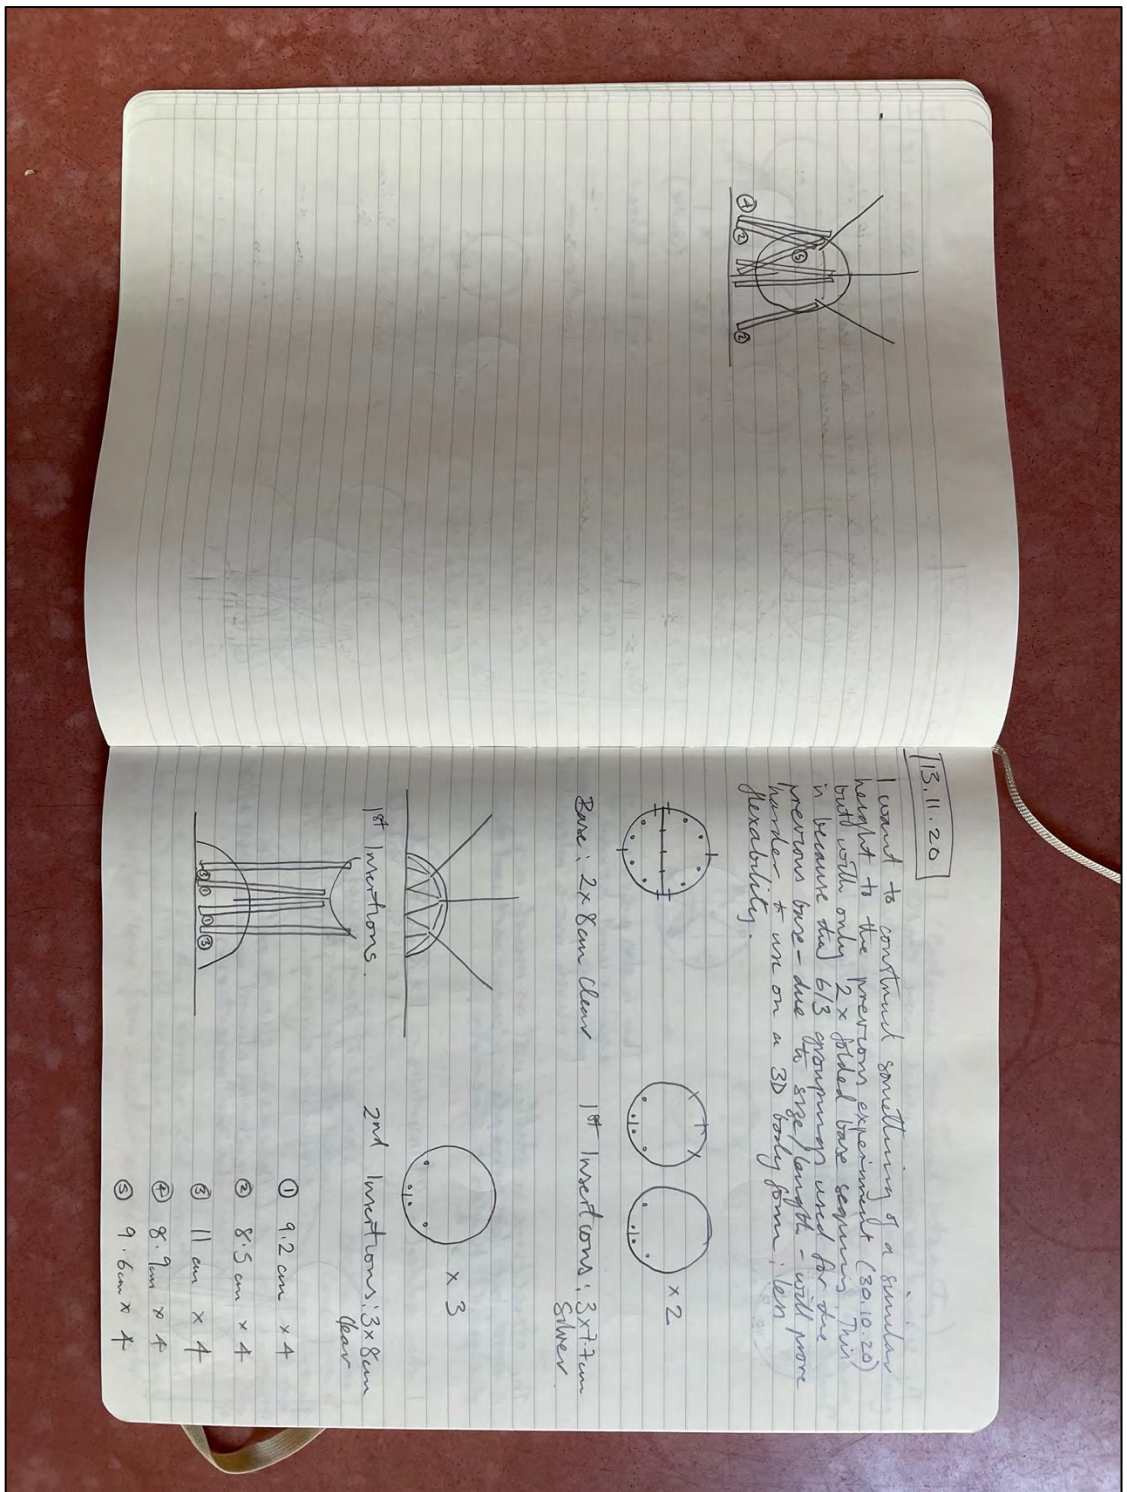 13.11.20
I want to construct something of a similar
height to the previous experiment (30.10.20)
but with only 2 x folded base sequins. This
is because the 6/3 groupings used for the
previous base - due to size/length - will prove
harder to use on a 3D body form; less
flexability.
x 2
Base: 2 x 8cm Clear
1st Insertions: 3 x 7.7cm
Silver
x 3
1st Insertions.
2nd Insertions: 3 x 8cm
Clear
3 1 1 3
① 9.2 cm x 4
② 8.5 cm x 4
③ 11 cm x 4
④ 8.9cm x 4
⑤ 9.6cm x 4
④
②
⑤
②